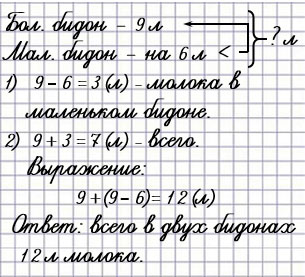 Бол. бидон – 9 л
Мал. бидон – на 6 л < ? л
1) 9 – 6 = 3 (л) – молока в
маленьком бидоне.
2) 9 + 3 = 7 (л) – всего.
Выражение:
9 + (9 – 6) = 12 (л)
Ответ: всего в двух бидонах
12 л молока.